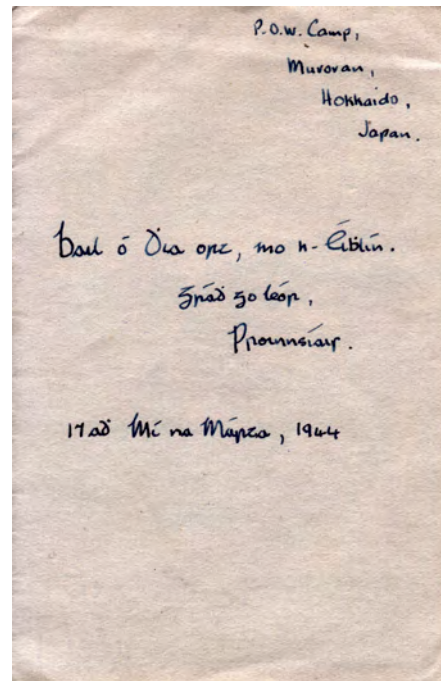 P.O.W. Camp,
Muroran,
Hokkaido,
Japan.
Bail ó Dia ort, mo h-Éiḃlín.
Gráḋ go leór,
Proinnsíais.
17aḋ Mí na Márta, 1944